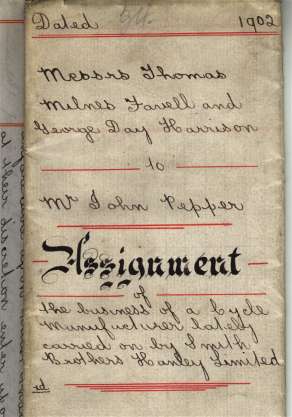 Dated 1902
Messrs Thomas
Milnes Favell and
George Day Harrison
to
Mr John Pepper
Assignment
of
the business of a Cycle
Manufacturer lately
carried on by Smith
Brothers Hanley Limited